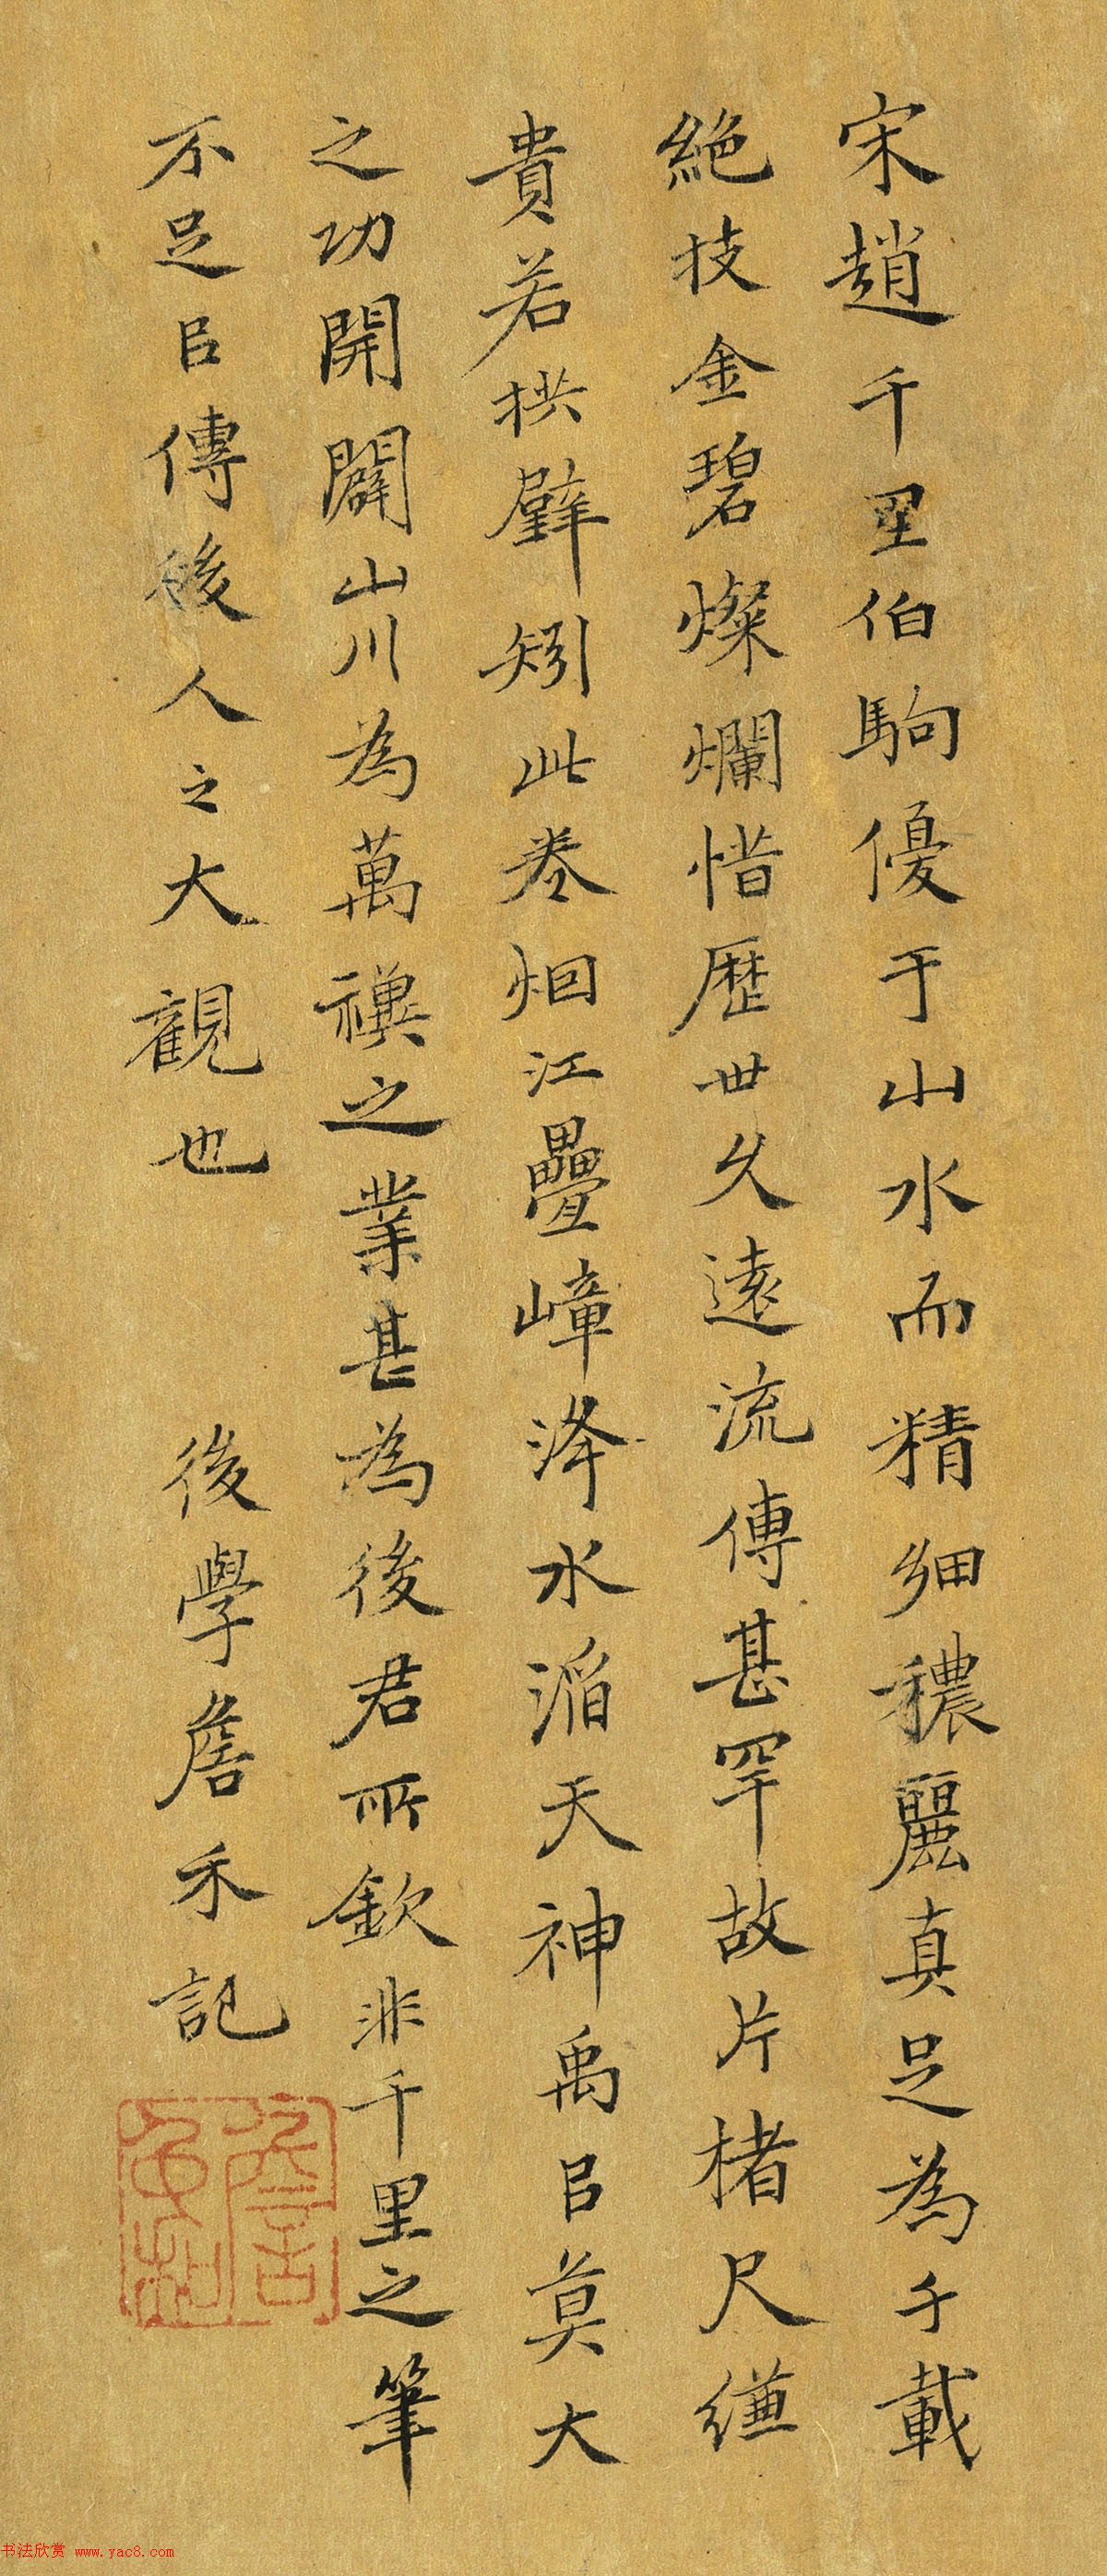 宋趙千里伯駒優于山水而精細穠麗真足為千載
絕技金碧燦爛惜歷世久遠流傳甚罕故片楮尺縑
貴若拱璧矧此卷洄江疊嶂洚水滔天神禹㠯莫大
之功開闢山川為萬禩之業甚為後君所欽非千里之筆
不足㠯傳後人之大觀也 後學詹禾記
书法欣赏 www.yac8.com